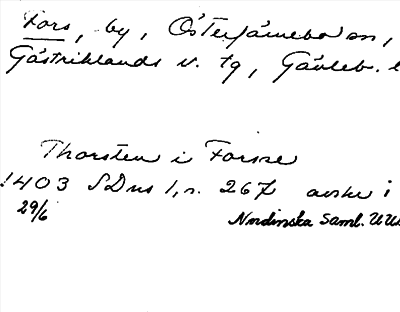 Fors, by, Österfärnebo sn,
Gästriklands v. tg, Gävleb. l
Thorsten i Forsse
1403 SDns 1, s. 267 avskr i
29/6
Nordinska Saml. UU